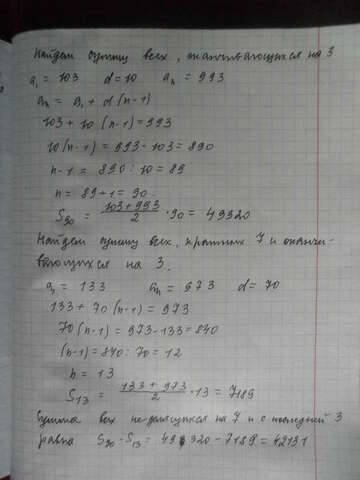 Найдем сумму всех, оканчивающихся на 3
a₁ = 103 d = 10 aₙ = 993
aₙ = a₁ + d(n-1)
103 + 10(n-1) = 993
10(n-1) = 993 - 103 = 890
n-1 = 890 : 10 = 89
n = 89 + 1 = 90.
S₉₀ = (103+993)/2 · 90 = 49320
Найдем сумму всех, кратных 7 и оканчи-
вающихся на 3.
a₁ = 133 aₙ = 973 d = 70
133 + 70(n-1) = 973
70(n-1) = 973 - 133 = 840
(n-1) = 840 : 70 = 12
n = 13
S₁₃ = (133 + 973)/2 · 13 = 7189
Сумма всех не делящихся на 7 и с последней 3
равна S₉₀ - S₁₃ = 49320 - 7189 = 42131